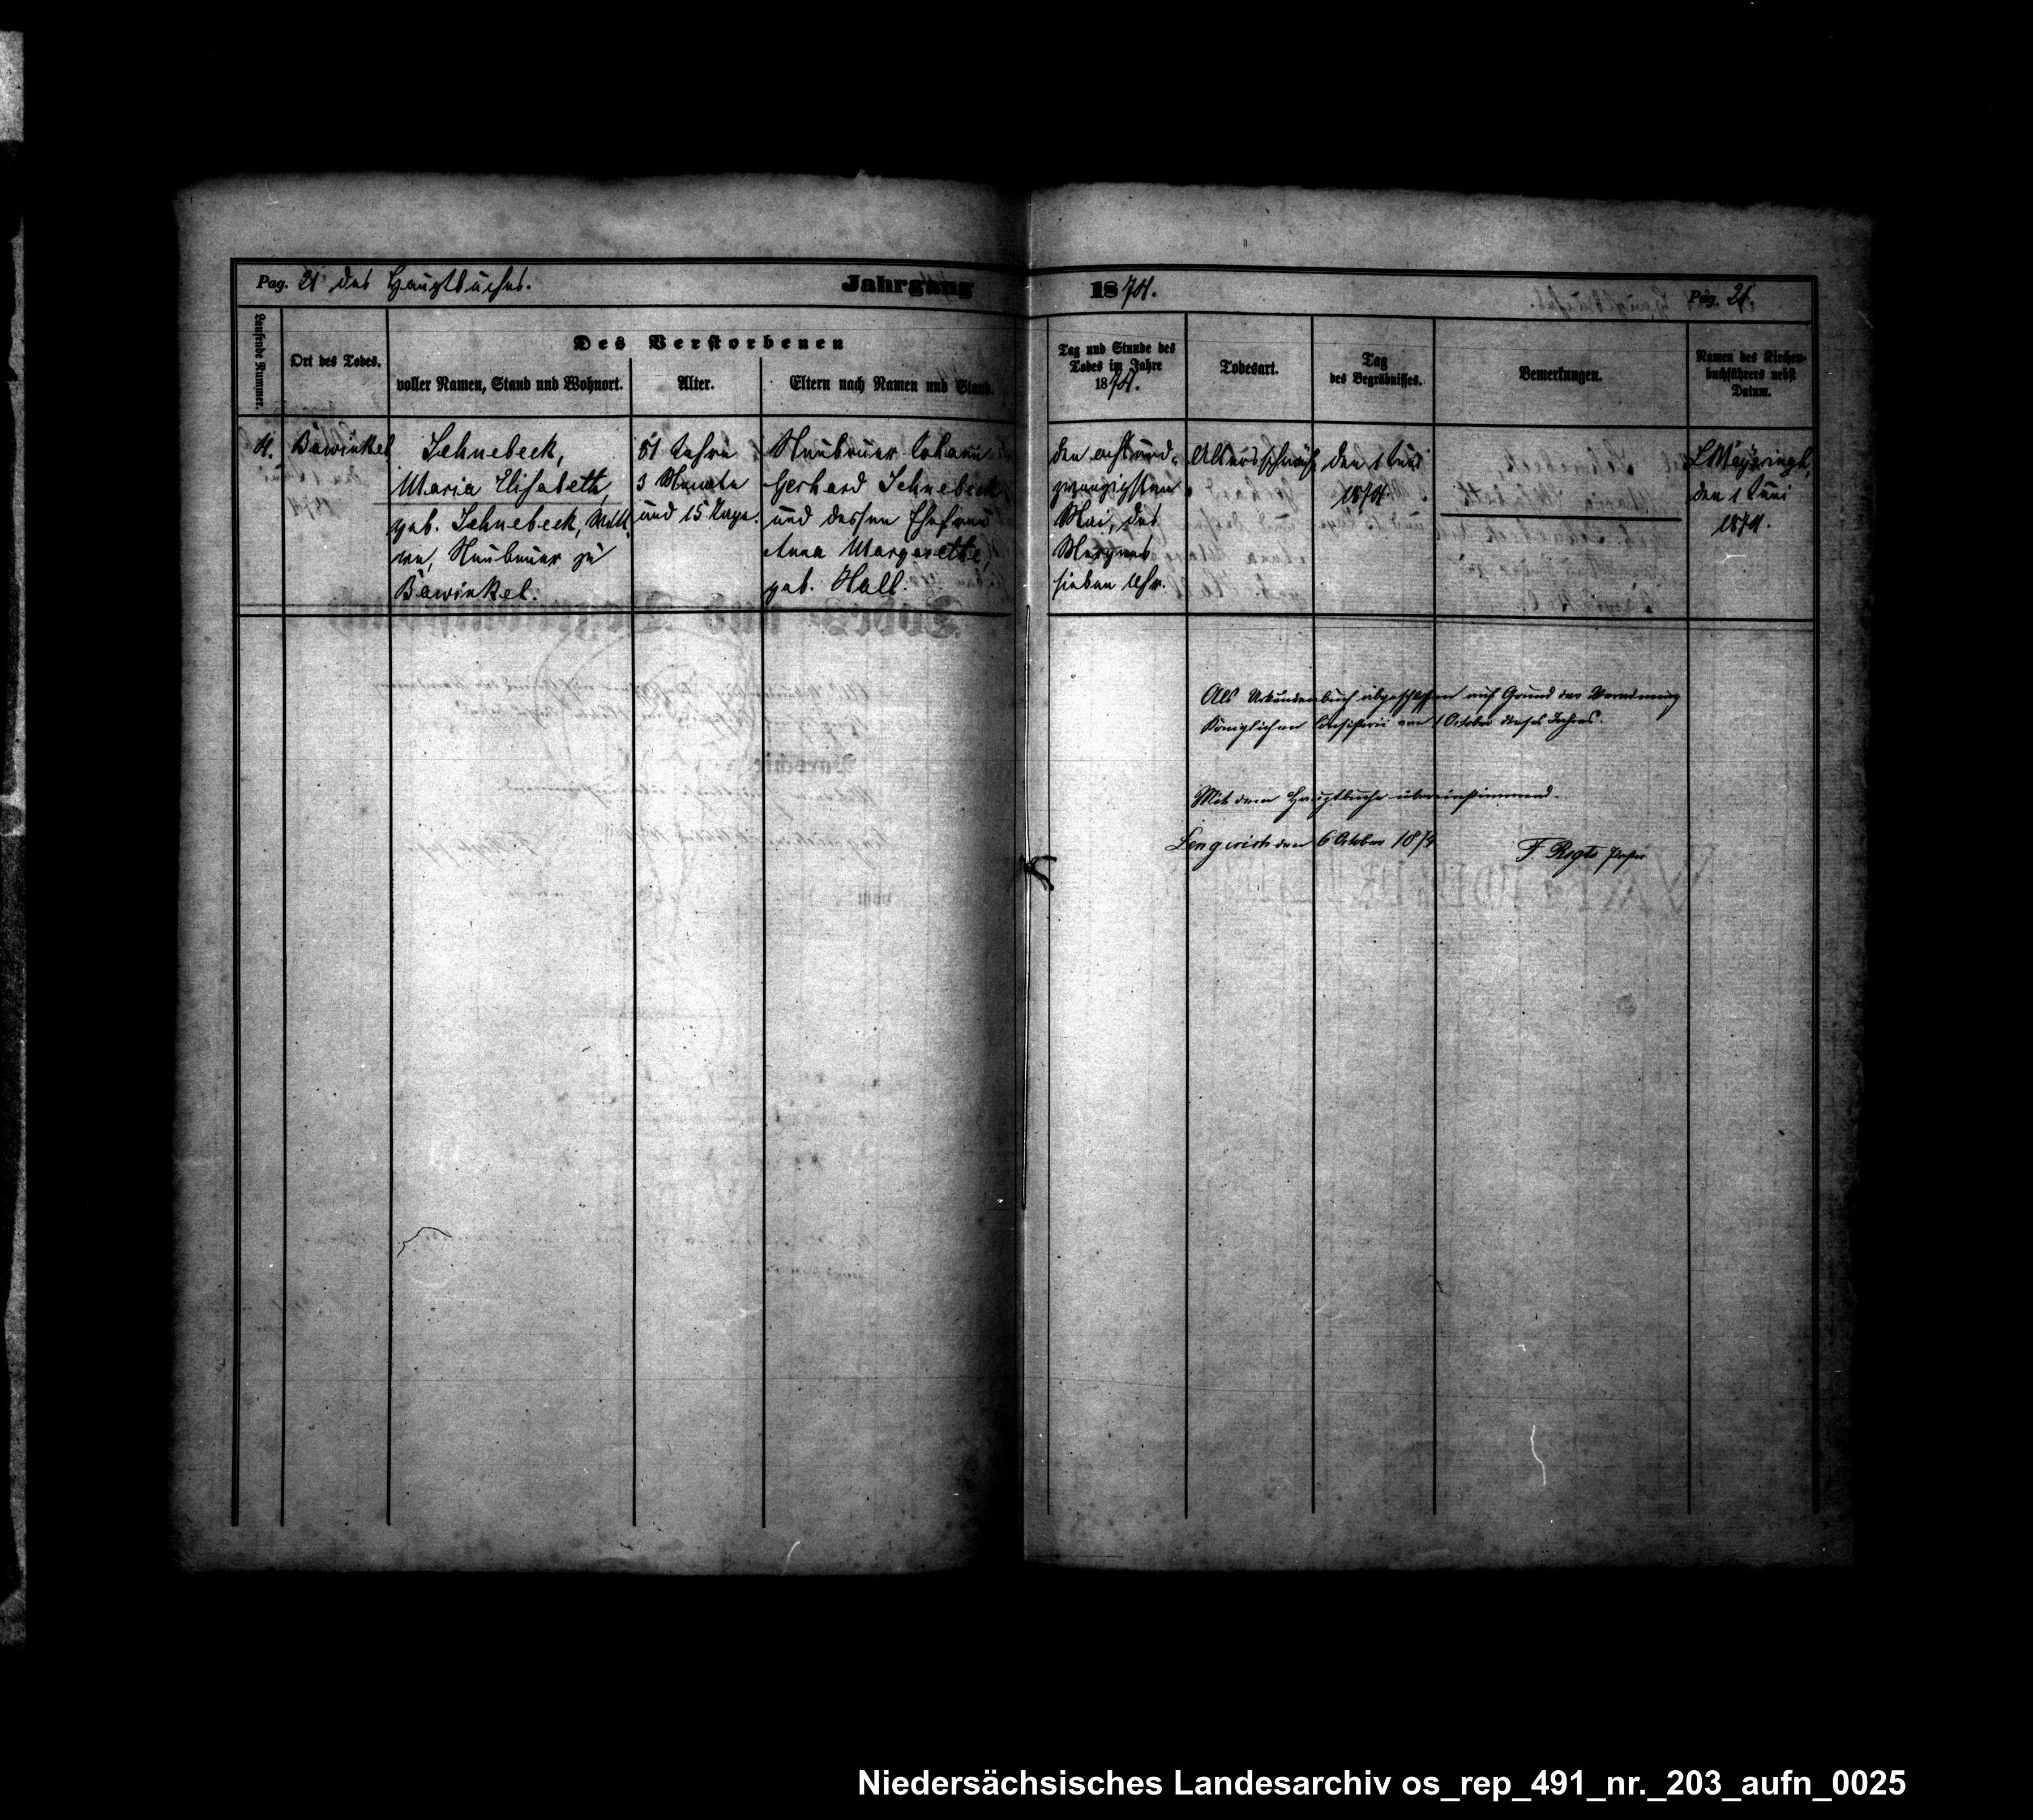 Pag. 21 des Hauptbuches.
Jahrgang
1874.
Pag. 21.
Laufende Nummer.
Ort des Todes.
Des Verstorbenen
voller Namen, Stand und Wohnort.
Alter.
Eltern nach Namen und Stand.
Tag und Stunde des
Todes im Jahre
1874.
Todesart.
Tag
des Begräbnisses.
Bemerkungen.
Namen des Kirchen-
buchführers nebst
Datum.
4.
Bawinkel
Schnebeck,
Maria Elisabeth,
geb. Schnebeck, Witt-
we, Neubauer zu
Bawinkel.
Jahre
3 Monate
und 15 Tage.
Neubauer Johann
Gerhard Schnebeck
und dessen Ehefrau
Anna Margarethe,
geb. Hall.
den acht und-
zwanzigsten
Mai, des
Morgens
sieben Uhr.
Altersschwäche
den 1 Juni
1874
L Meyeringh,
den 1 Juni
1874.
Als Urkundenbuch abgeschlossen auf Grund der Verordnung
Königlichen Consistorii vom 1 October dieses Jahres.
Mit dem Hauptbuche übereinstimmend.
Lengerich den 6 October 1874
F Regts Pastor
Niedersächsisches Landesarchiv os_rep_491_nr._203_aufn_0025